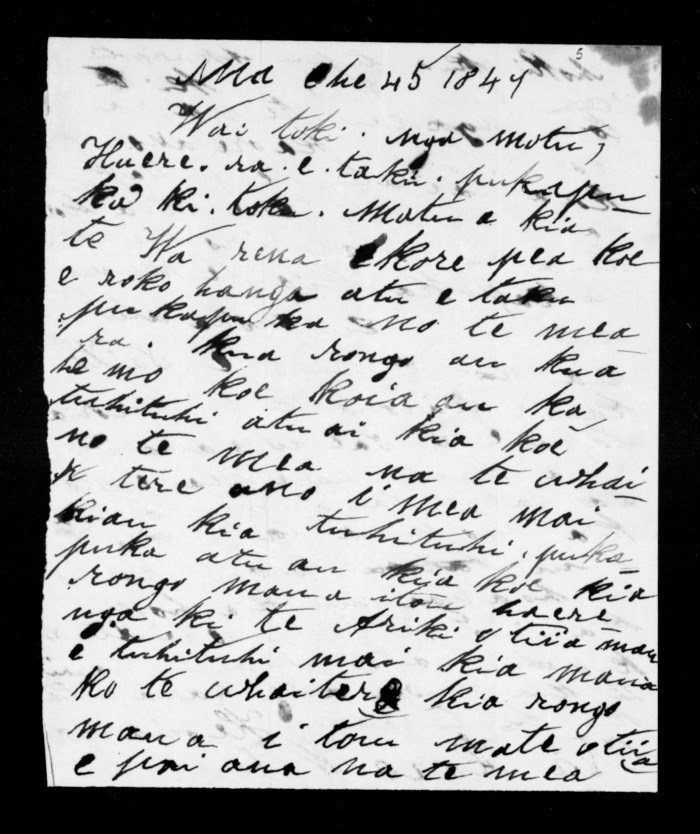 5
Mā Ohe 45 1847
Wai toki. nga motu,
Haere. ra. e. taku. pukapu
ka ki. toku. Matua kia
te Wa rena ekore pea koe
e roko hanga atu e taku
pukapuka no te mea
ra. kua rongo au kua
he mo koe koia au ka
tuhituhi atu ai kia koe
no te mea na te whai
tere ano i mea mai
kiau kia tuhituhi. puka
puka atu au kia koe kia
rongo mana itou haere
nga ki te Ariki otiia mau
e tuhituhi mai kia mana
ko te whaitere kia rongo
mana i tou mate otiia
e pai ana na te mea